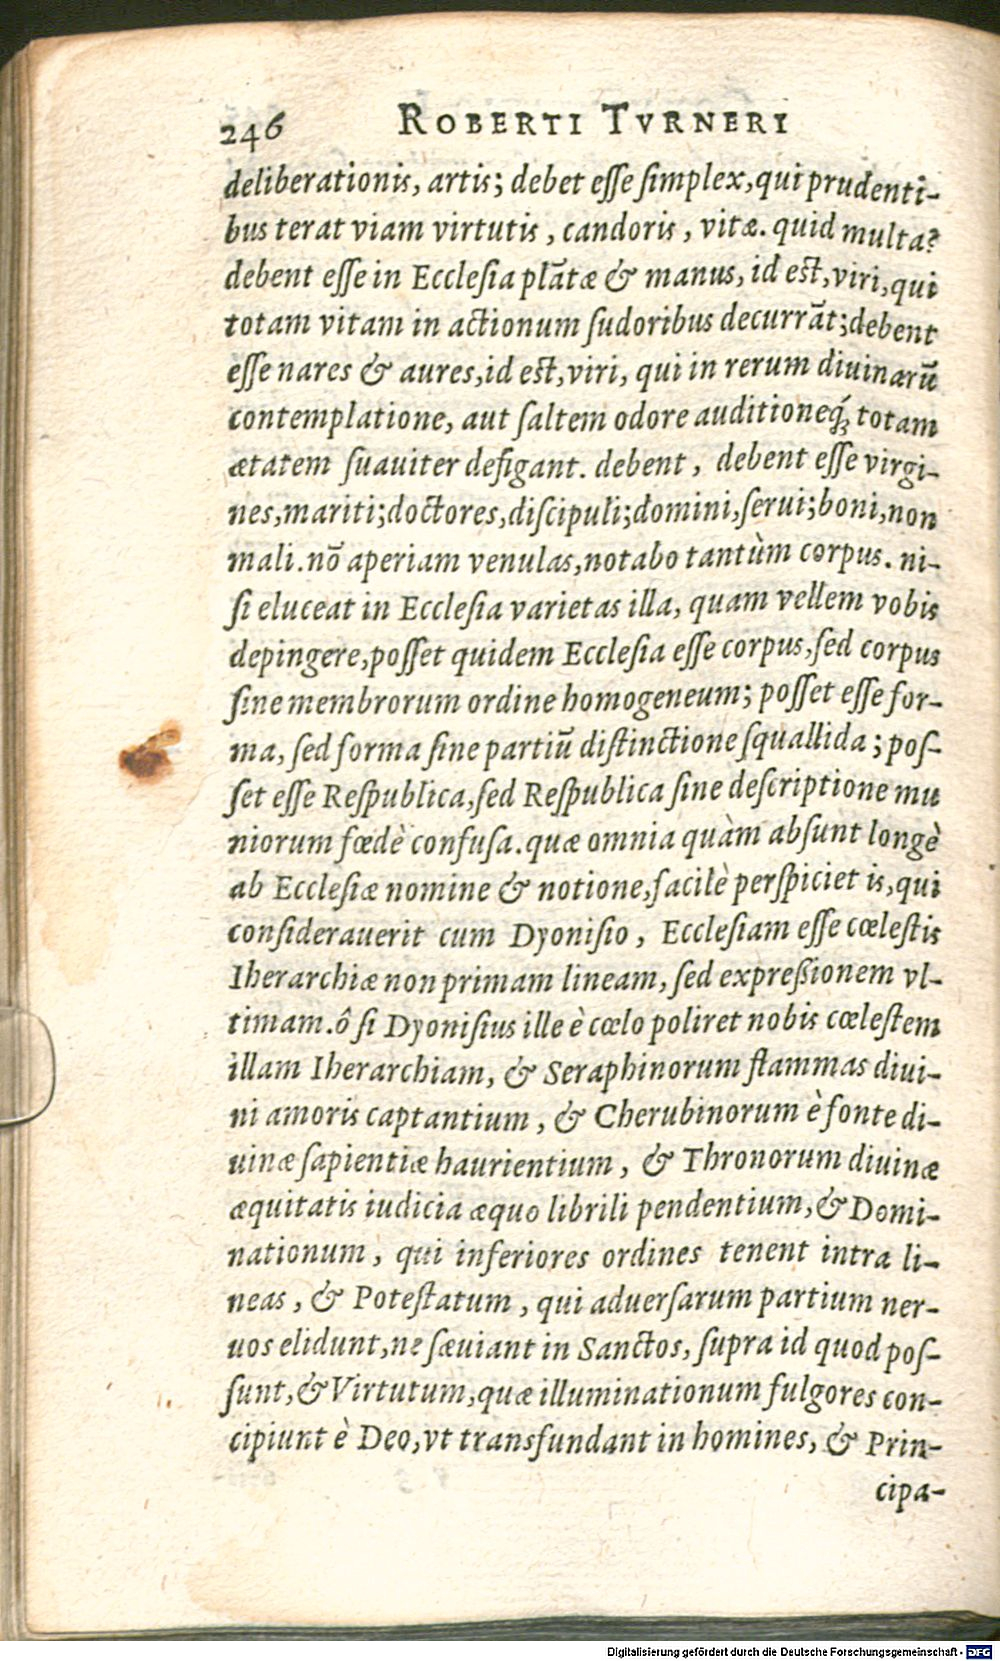 246 ROBERTI TVRNERI
deliberationis, artis; debet esse simplex, qui prudenti-
bus terat viam virtutis, candoris, vitæ. quid multa?
debent esse in Ecclesia plãtæ & manus, id est, viri, qui
totam vitam in actionum sudoribus decurrãt; debent
esse nares & aures, id est, viri, qui in rerum diuinarũ
contemplatione, aut saltem odore auditioneq́; totam
ætatem suauiter defigant. debent, debent esse virgi-
nes, mariti; doctores, discipuli; domini, serui; boni, non
mali. nõ aperiam venulas, notabo tantùm corpus. ni-
si eluceat in Ecclesia varietas illa, quam vellem vobis
depingere, posset quidem Ecclesia esse corpus, sed corpus
sine membrorum ordine homogeneum; posset esse for-
ma, sed forma sine partiũ distinctione squallida; pos-
set esse Respublica, sed Respublica sine descriptione mu
niorum fœdè confusa. quæ omnia quàm absunt longè
ab Ecclesiæ nomine & notione, facilè perspiciet is, qui
considerauerit cum Dyonisio, Ecclesiam esse cœlestis
Iherarchiæ non primam lineam, sed expreßionem vl-
timam. ô si Dyonisius ille è cœlo poliret nobis cœlestem
illam Iherarchiam, & Seraphinorum flammas diui-
ni amoris captantium, & Cherubinorum è fonte di-
uinæ sapientiæ haurientium, & Thronorum diuinæ
æquitatis iudicia æquo librili pendentium, & Domi-
nationum, qui inferiores ordines tenent intra li-
neas, & Potestatum, qui aduersarum partium ner-
uos elidunt, ne sæuiant in Sanctos, supra id quod pos-
sunt, & Virtutum, quæ illuminationum fulgores con-
cipiunt è Deo, vt transfundant in homines, & Prin-
cipa-
Digitalisierung gefördert durch die Deutsche Forschungsgemeinschaft - DFG